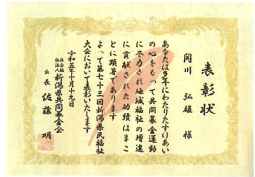 表彰状
関川 弘雄 様
あなたは多年にわたりたすけあい
の心をもって共同募金運動
に尽力され地域福祉の増進
に貢献された功績はまこ
とに顕著であります
よって第七十三回新潟県民福祉
大会において表彰いたします
令和五年十月十九日
社会福祉法人 新潟県共同募金会
会長 佐藤 明